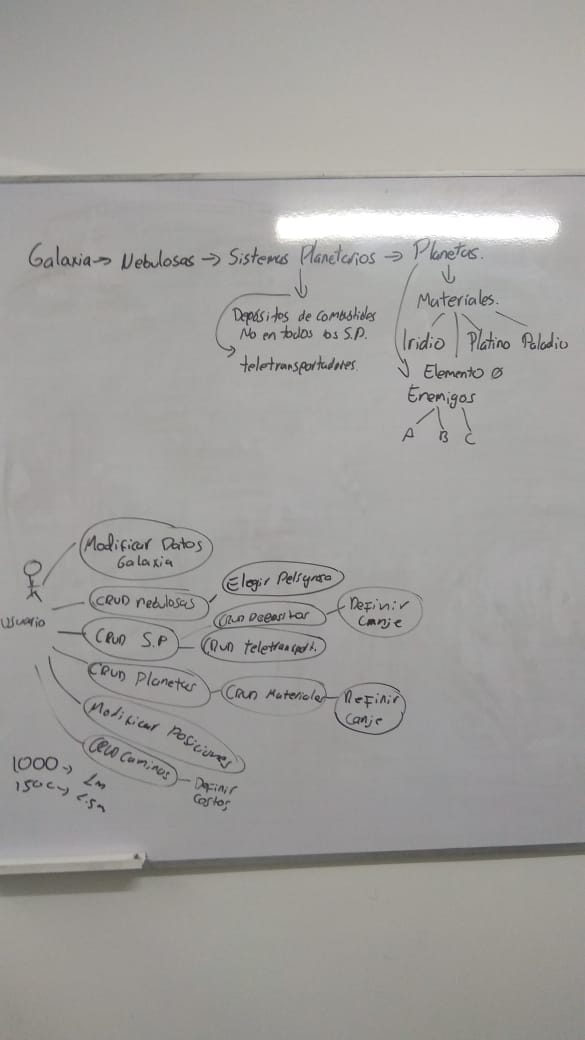 Galaxia → Nebulosas → Sistemas Planetarios → Planetas.
Depósitos de combustibles
No en todos los S.P.
teletransportadores.
Materiales.
Iridio Platino Paladio
Elemento Ø
Enemigos
A B C
usuario
Modificar Datos
Galaxia
CRUD nebulosas
Elegir Peligrosa
CRUD S.P
CRUD Depositos
Definir
Canje
CRUD teletransport.
CRUD Planetas
CRUD Materiales
Definir
Canje
Modificar Posiciones
CRUD Caminos
Definir
Costos,
1000 →